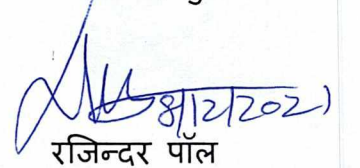 8/2/2021
रजिन्दर पॉल